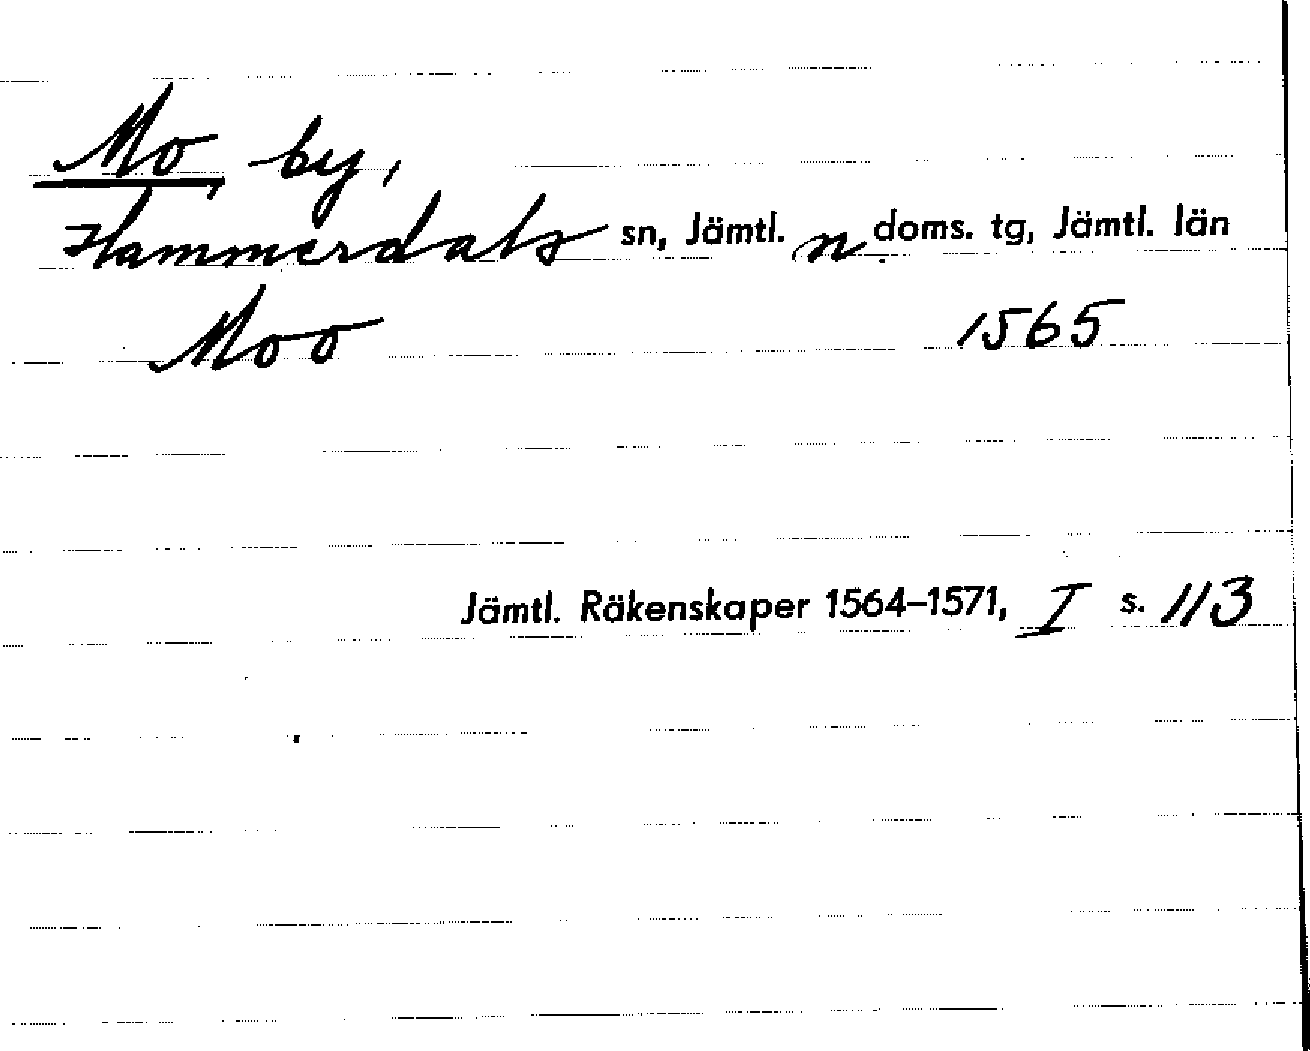 Mo, by,
Hammerdals sn, Jämtl. n. doms. tg, Jämtl. län
Moo 1565
Jämtl. Räkenskaper 1564–1571, I s. 113